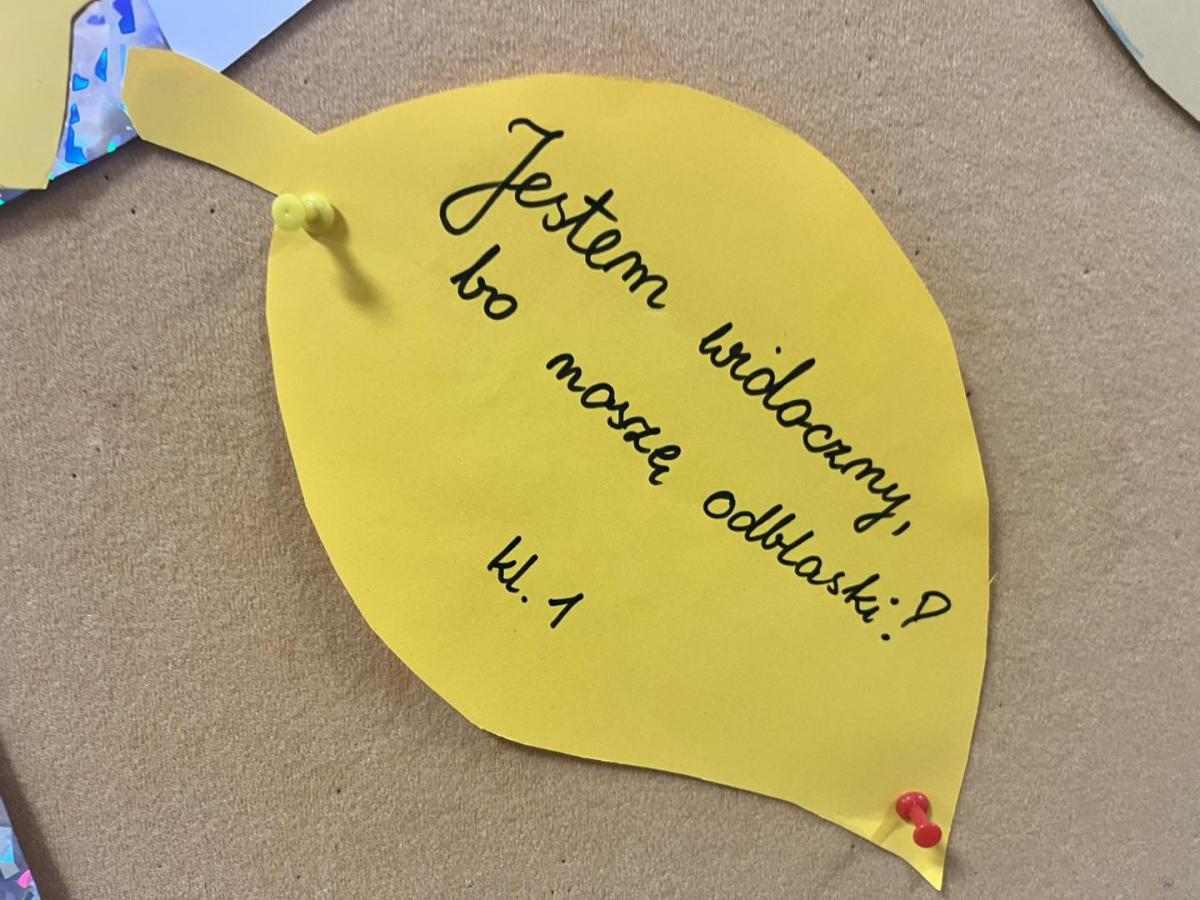 Jestem widoczny,
bo noszę odblaski!
kl. 1